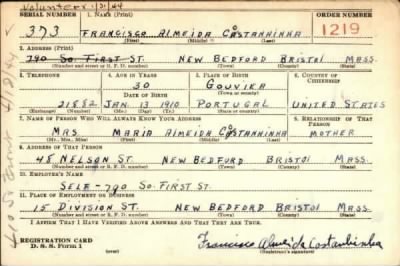 Volunteer 1/31/44
SERIAL NUMBER 1. NAME (Print) ORDER NUMBER
373 FRANCISCO ALMEIDA COSTANHINHA 1219
(First) (Middle) (Last)
2. ADDRESS (Print)
790 SO. FIRST ST. NEW BEDFORD BRISTOL MASS.
(Number and street or R. F. D. number) (Town) (County) (State)
3. TELEPHONE 4. AGE IN YEARS 5. PLACE OF BIRTH 6. COUNTRY OF CITIZENSHIP
30 GOUVIEA
DATE OF BIRTH (Town or county)
21882 JAN. 13 1910 PORTUGAL UNITED STATES
(Exchange) (Number) (Mo.) (Day) (Yr.) (State or country)
7. NAME OF PERSON WHO WILL ALWAYS KNOW YOUR ADDRESS 8. RELATIONSHIP OF THAT PERSON
MRS. MARIA ALMEIDA COSTANHINHA MOTHER
(Mr., Mrs., Miss) (First) (Middle) (Last)
9. ADDRESS OF THAT PERSON
48 NELSON ST. NEW BEDFORD BRISTOL MASS.
(Number and street or R. F. D. number) (Town) (County) (State)
10. EMPLOYER'S NAME
SELF-790 SO. FIRST ST.
11. PLACE OF EMPLOYMENT OR BUSINESS
15 DIVISION ST. NEW BEDFORD BRISTOL MASS.
(Number and street or R. F. D. number) (Town) (County) (State)
I AFFIRM THAT I HAVE VERIFIED ABOVE ANSWERS AND THAT THEY ARE TRUE.
REGISTRATION CARD
D. S. S. FORM 1
Francisco Almeida Costanhinha
(Registrant's signature)